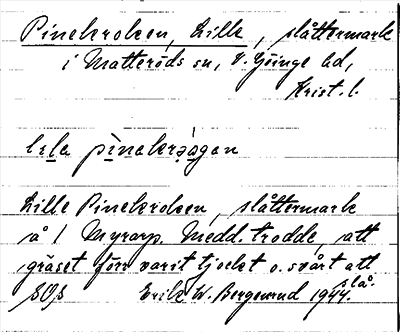 Pinekroken, Lille, slåttermark
i Matteröds sn, V. Göinge hd,
Krist. l.
lɩla pinekrǫgan
Lille Pinekroken, slåttermark
å 1 Myrarp. Medd. trodde, att
gräset förr varit tjockt o. svårt att
slå.
SOS Erik W. Bergenrud 1944.